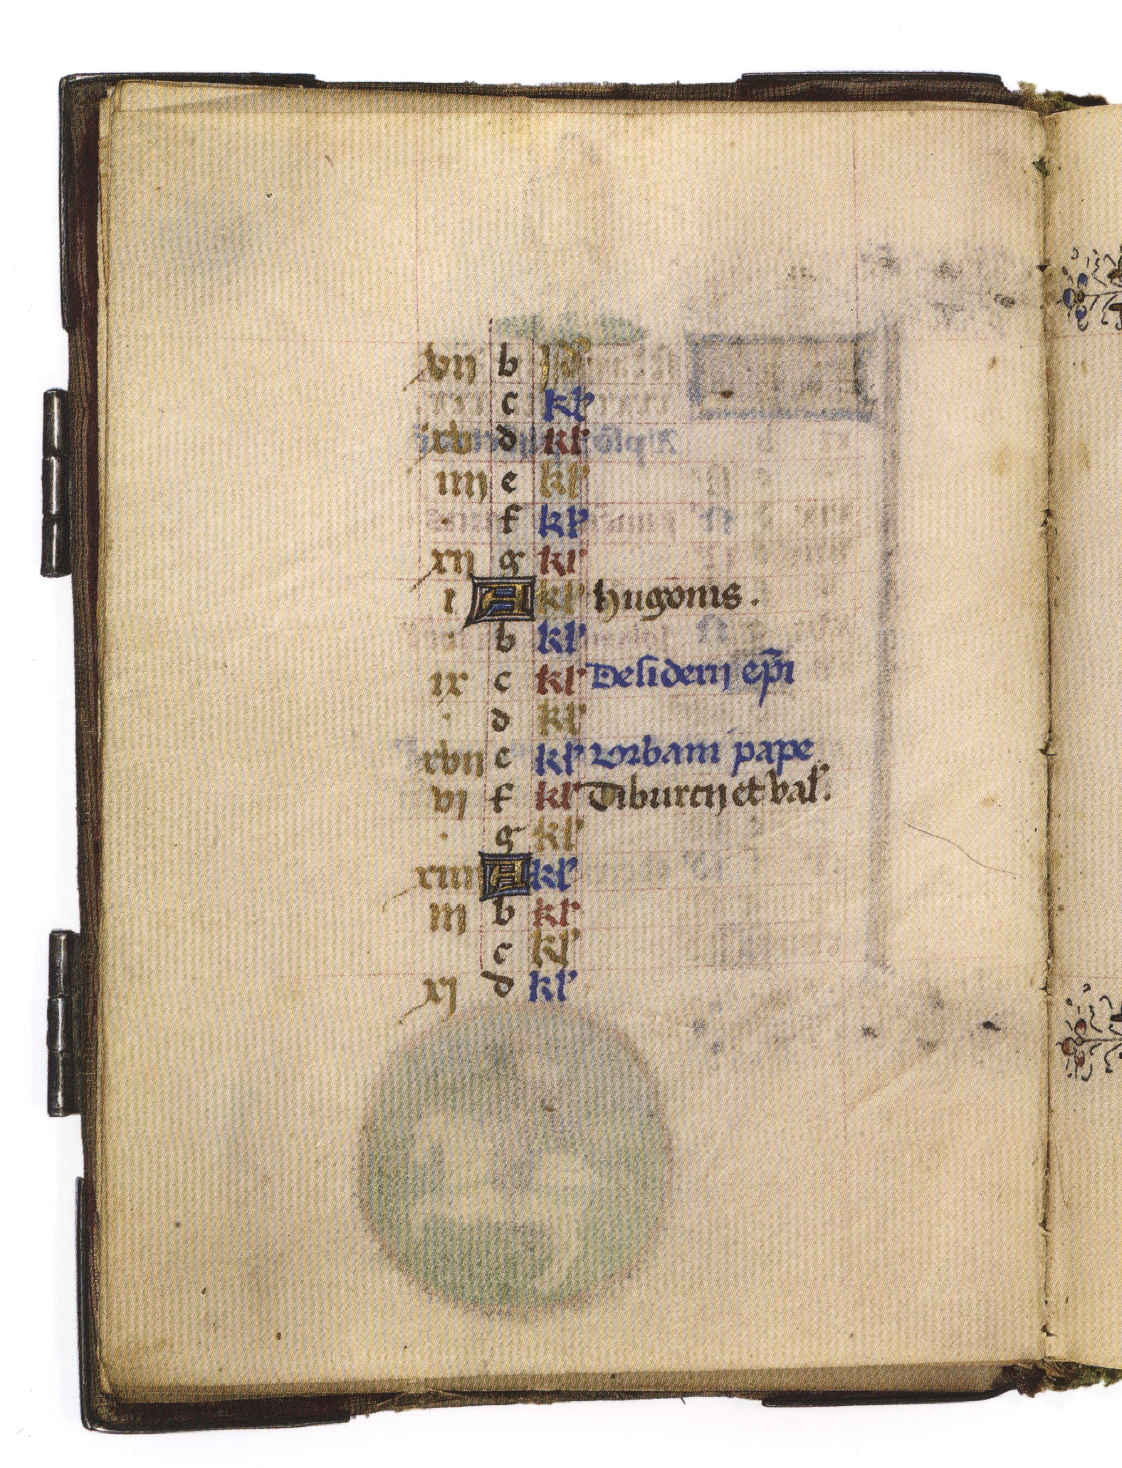 vij b Id'
c kl'
xv d kl'
iiij e kl'
. f kl'
xij g kl'
i A kl' hugonis .
. b kl'
ix c kl' Desiderij ep̄i
. d kl'
xvij e kl' Vrbani pape
vi f kl' Tiburcij et val'.
. g kl'
xiiij A kl'
iij b kl'
c kl'
xj d kl'